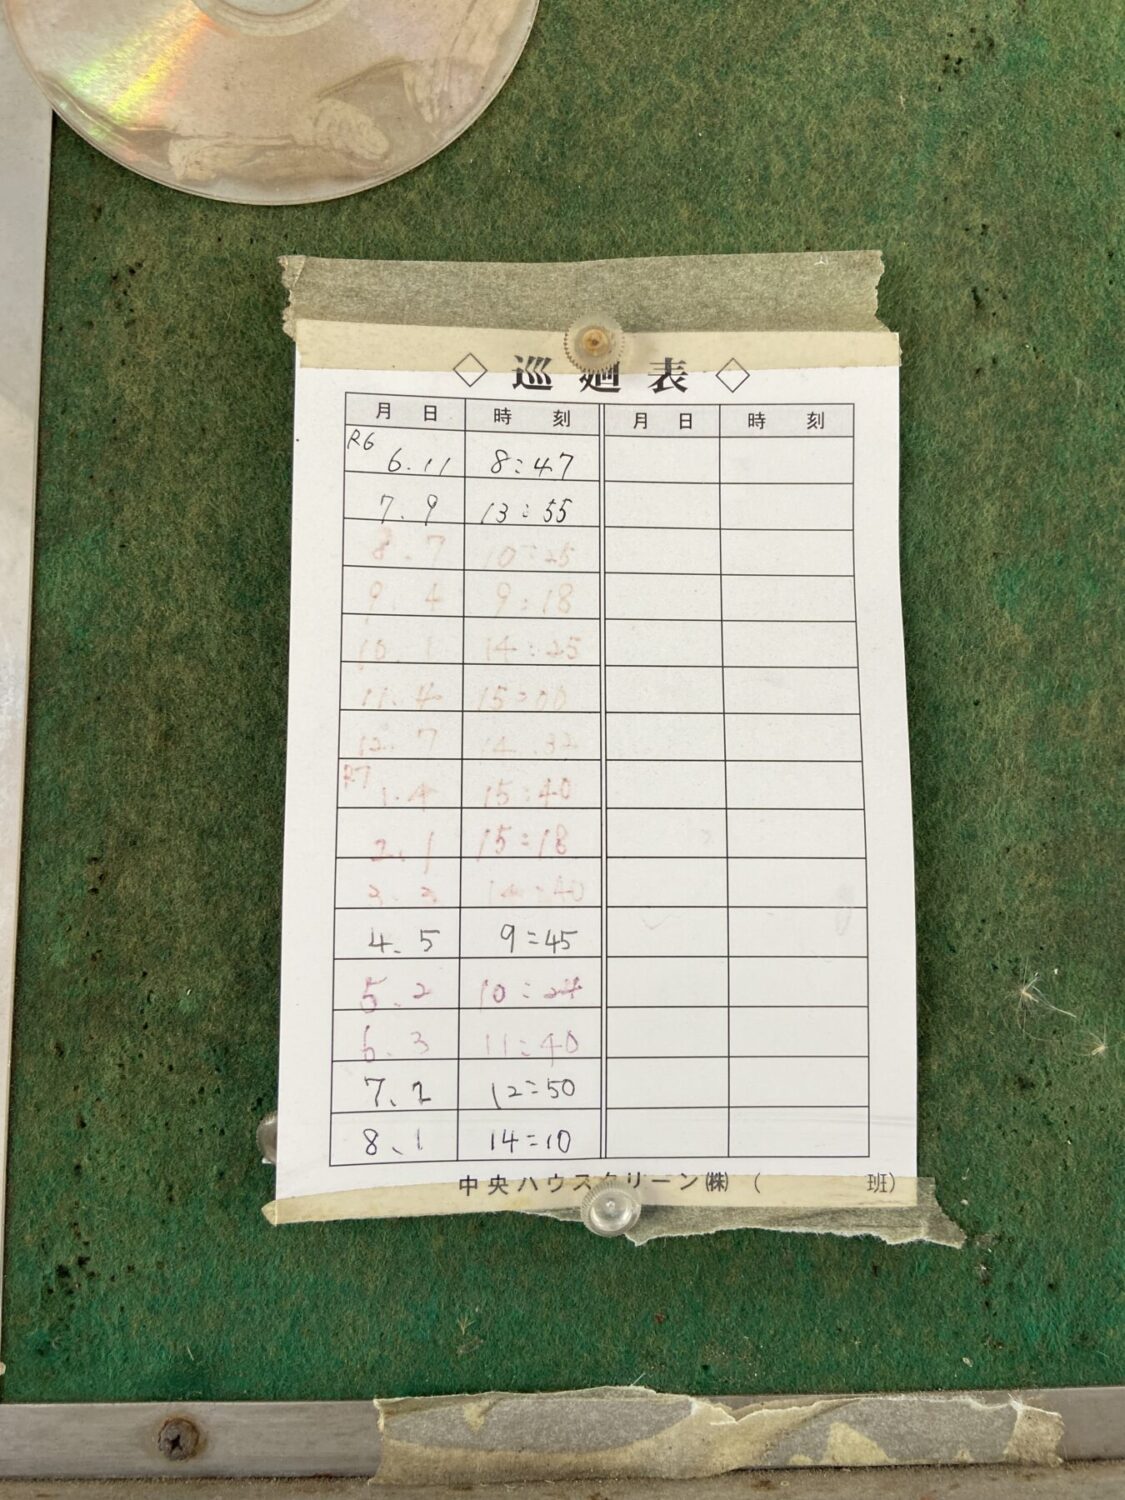 ◇ 巡廻表 ◇
月日 時刻 月日 時刻
R6 6.11 8:47
7.9 13:55
8.7 10:25
9.4 9:18
10.1 14:25
11.4 15:00
12.7 14:32
R7 1.4 15:40
2.1 15:18
3.3 14:40
4.5 9:45
5.2 10:24
6.3 11:40
7.2 12:50
8.1 14:10
中央ハウスクリーン㈱ ( 班)